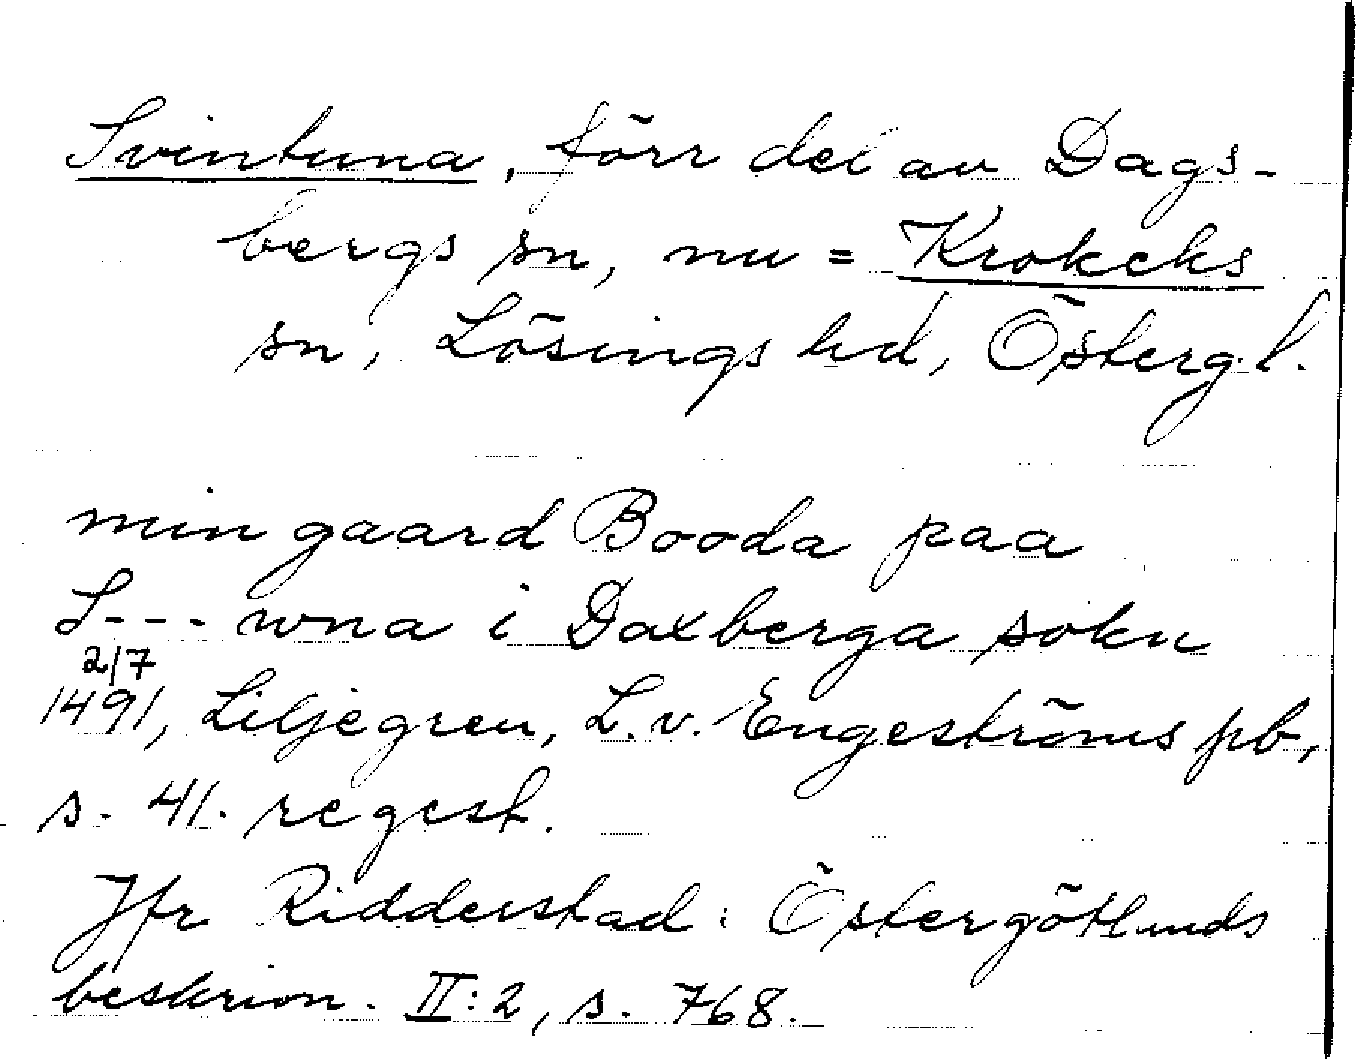 Svintuna, förr del av Dags-
bergs sn, nu = Krokeks
sn, Lösings hd, Östergl.
min gaard Booda paa
S--- wna i Daxberga sokn
2/7
1491, Liljegren, L. v. Engeströms pb,
s. 41. regest.
Jfr Ridderstad: Östergötlands
beskrivn. II:2, s. 768.